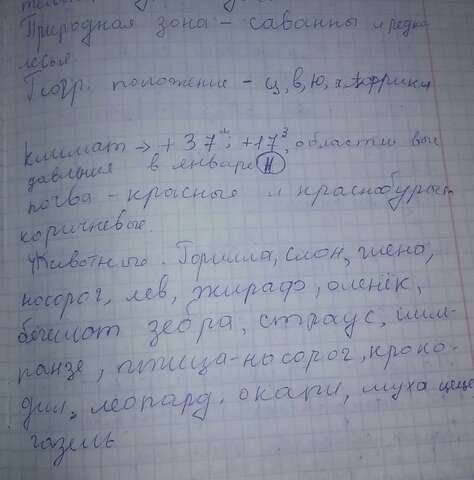 Природная зона - саванны и редко
лесья.
Геогр. положение - ц, в, ю, Африки
климат → +37^л; +17^з, области выс
давления в январе Н
почва - красные и краснобурые
коричневые.
Животные. Горилла, слон, гиена,
носорог, лев, жираф, оленёк,
бегемот зебра, страус, шим-
панзе, птица-носорог, кроко-
дил, леопард. окапи, муха цеце
газель